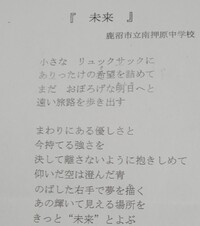 『 未来 』
鹿沼市立南押原中学校
小さな リュックサックに
ありったけの希望を詰めて
まだ おぼろげな明日へと
遠い旅路を歩き出す
まわりにある優しさと
今持てる強さを
決して離さないように抱きしめて
仰いだ空は澄んだ青
のばした右手で夢を描く
あの輝いて見える場所を
きっと“未来”とよぶ